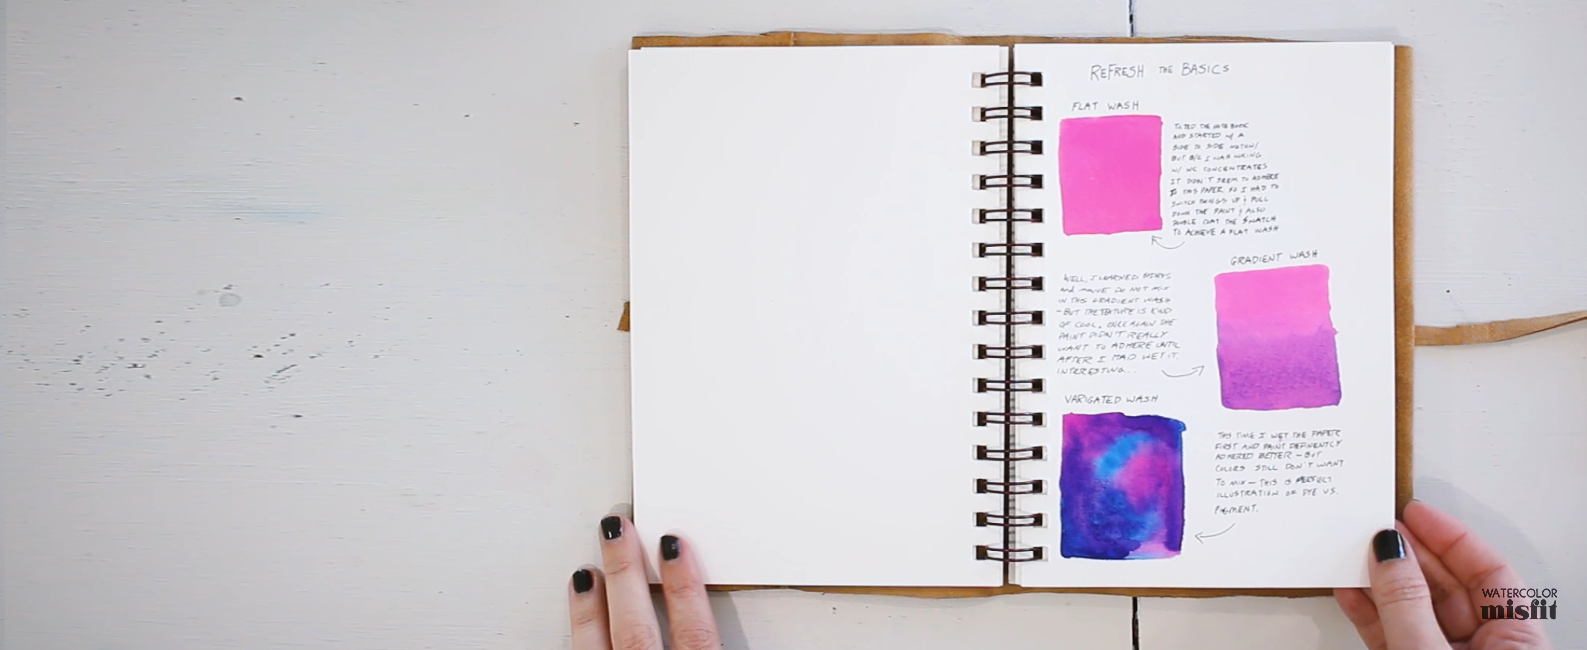 REFRESH THE BASICS
FLAT WASH
TILTED THE NOTEBOOK
AND STARTED W/ A
SIDE TO SIDE MOTION/
BUT B/C I WAS USING
W/ WC CONCENTRATES
IT DIDN'T SEEM TO ADHERE
THIS PAPER SO I HAD TO
SWITCH THINGS UP & PULL
DOWN THE PAINT & ALSO
DOUBLE COAT THE SWATCH
TO ACHIEVE A FLAT WASH
GRADIENT WASH
WELL, I LEARNED
AND MAUVE DO NOT MIX
IN THIS GRADIENT WASH
- BUT THE TEXTURE IS KIND
OF COOL, ONCE AGAIN THE
PAINT DIDN'T REALLY
WANT TO ADHERE UNTIL
AFTER I HAD WET IT.
INTERESTING...
VARIGATED WASH
THIS TIME I WET THE PAPER
FIRST AND PAINT DEFINENTLY
ADHERED BETTER - BUT
COLORS STILL DON'T WANT
TO MIX - THIS IS PERFECT
ILLUSTRATION OF DYE VS.
PIGMENT.
WATERCOLOR
misfit